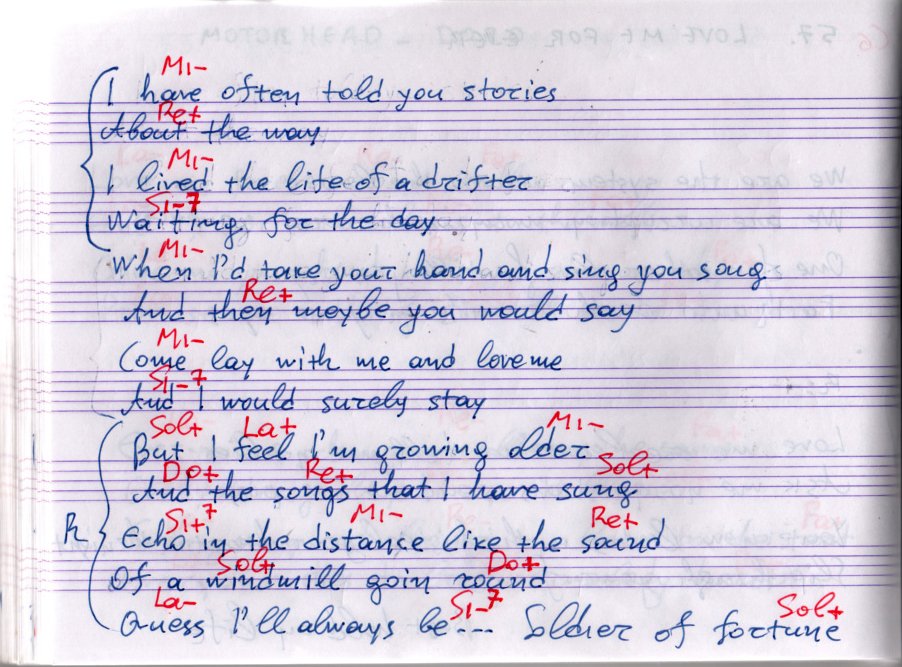 57. LOVE ME FOR
Mi-
I have often told you stories
Re+
About the way
Mi-
I lived the life of a drifter
Si-7
Waiting for the day
Mi-
When I'd take your hand and sing you song
Re+
And then meybe you would say
Mi-
Come lay with me and love me
Si-7
And I would surely stay
Sol+ La+ Mi-
But I feel I'm growing older
Do+ Re+ Sol+
And the songs that I have sung
Si+7 Mi- Re+
R Echo in the distanse like the sound
Sol+ Do+
Of a windmill goin round
La- Si-7 Sol+
Guess I'll always be... Soldier of fortune